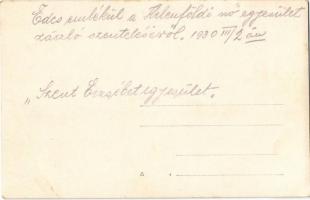 Édes emlékül a Kelenföldi nő egyesület
zászló szenteléséről. 1930 III/2 án
„Szent Erzsébet egyesület."